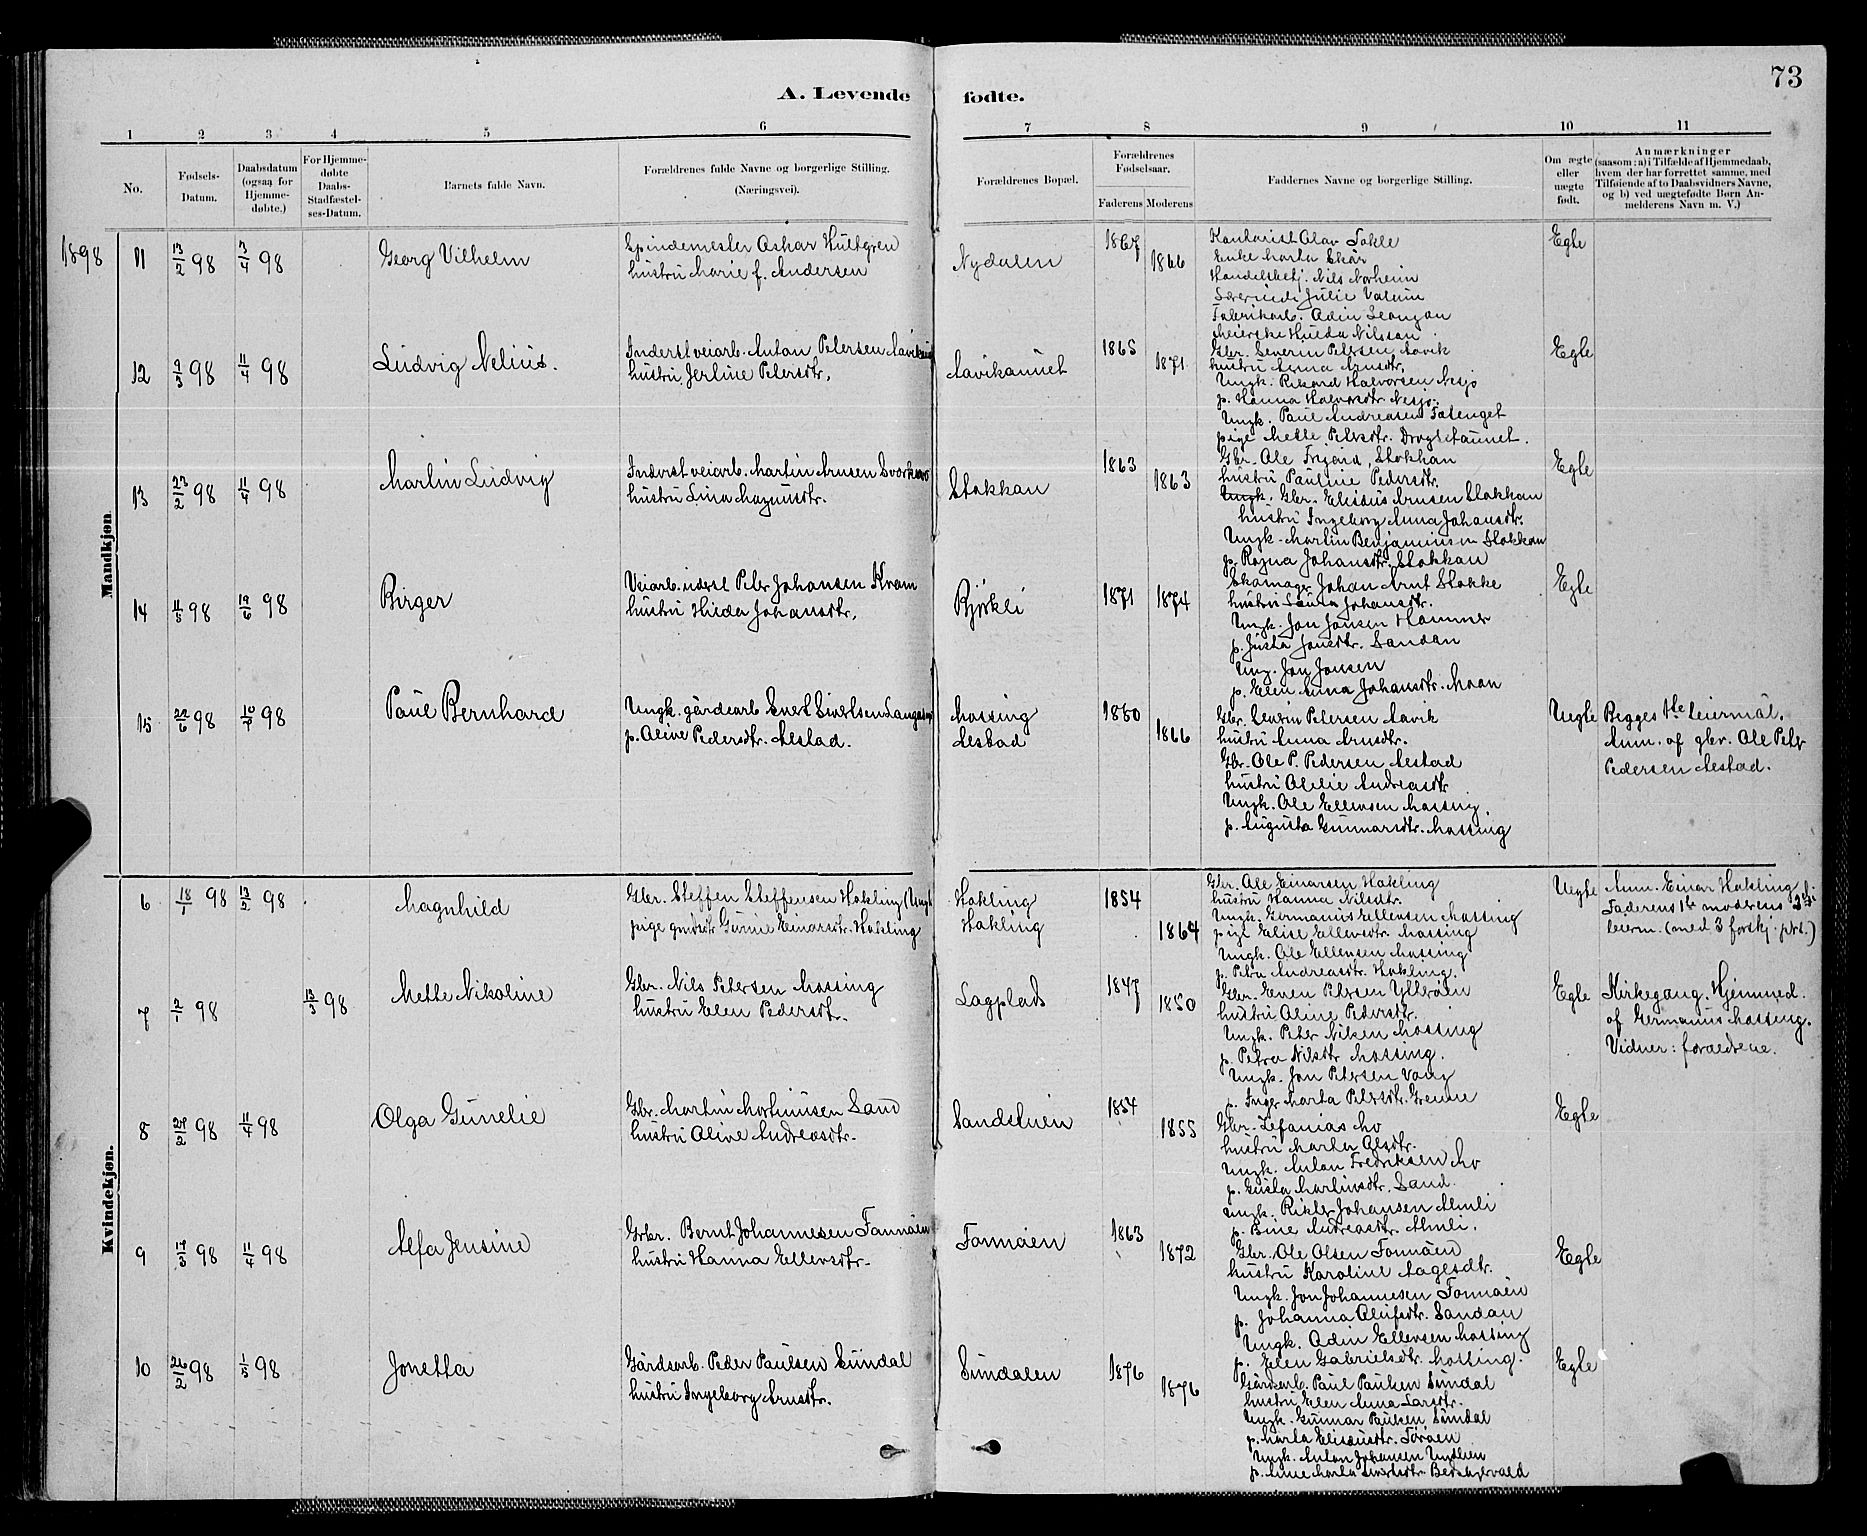 73
A. Levende fødte.
1 2 3 4 5 6 7 8 9 10 11
No.
Fødsels-
Datum.
Daabsdatum
(ogsaa for
Hjemme-
døbte.)
For Hjemme-
døbte
Daabs-
Stadfæstel-
ses-Datum.
Barnets fulde Navn.
Forældrenes fulde Navne og borgerlige Stilling.
(Næringsvei).
Forældrenes Bopæl.
Forældrenes
Fødselsaar.
Faderens Moderens
Faddernes Navne og borgerlige Stilling.
Om ægte
eller
uægte
født.
Anmærkninger
(saasom: a) i Tilfælde af Hjemmedaab,
hvem der har forrettet samme, med
Tilføiende af to Daabsvidners Navne,
og b) ved uægtefødte Børn An-
melderens Navn m. V.)
1898
Mandkjøn.
11 13/2 98 3/4 98 Georg Vilhelm
Spindemester Oskar Hultgren
hustru Marie f. Andersen
Nydalen 1867 1866
Handelsbetj. Nils Norheim
Julie
Adin
Meierske Hulda Nilsson
Egte
12 9/3 98 11/4 98 Ludvig Nelius.
Inderst veiarb. Anton Petersen
hustru Jerline Petersdtr.
Aavikaunet 1865 1871
Gbr. Severin Petersen Aavik
hustru Anna Arnsdtr.
Ungk. Rikard Halvorsen Nesjo
p. Hanna Halvorsdtr. Nesjo.
Ungk. Paul Andreasen
pige Mette Petersdtr.
Egte
13 27/2 98 11/4 98 Martin Ludvig
Inderst veiarb. Martin Arnsen
hustru Lina Magnusdtr.
Stokkan 1863 1863
Gbr. Ole Stokkan
hustru Pauline Pedersdtr.
Ungk. Gbr. Eliseus Arnsen Stokkan
hustru Ingeborg Anna Johansdtr.
Ungk. Martin Benjaminsen Stokkan
p. Ragna Johansdtr. Stokkan
Egte
14 11/5 98 19/6 98 Birger
Veiarb. inderst Peter Johansen Kram
hustru Hilda Johansdtr.
Bjørkli 1871 1874
Skomager Johan Arnt Stokke
hustru Laura Johansdtr.
Ungk. Jon Jonsen Hammer
p. Justa Jonsdtr. Sandan
Ung. Jon Jonsen
p. Elen Anna Johansdtr. Moan
Egte
15 22/6 98 10/7 98 Paul Bernhard
Ungk. gårdearb. Evert Sivertsen
p. Olive Pedersdtr. Aestad.
Mossing
Aestad
1860 1866
Gbr. Severin Petersen Aavik
hustru Anna Arnsdtr.
Gbr. Ole P. Pedersen Aestad
hustru Olelie Andreasdtr.
Ungk. Ole Ellevsen Mossing.
p. Augusta Gunnarsdtr. Mossing
Uegte
Begges 1ste leiermål.
Anm. af gbr. Ole Peter
Pedersen Aestad.
Kvindekjøn.
6 18/1 98 13/2 98 Magnhild
Gbr. Steffen Steffensen Hokling (Ungk
pige Gurine Einarsdtr. Hokling
Hokling
Hokling
1854 1864
Gbr. Ole Einarsen Hokling
hustru Hanna Nilsdtr.
Ungk. Germanus Ellevsen Mossing
pige Elise Ellevsdtr. Mossing
Ungk. Ole Ellevsen Mossing
p. Petra Andreasdtr. Hokling.
Uegte
Anm. Einar Hokling
Faderens 1te moderens 3die
leierm. (med 3 forskj. prs.)
7 2/1 98 13/3 98 Mette Nikoline
Gbr. Nils Petersen Mossing
hustru Elen Pedersdtr.
Lagplads 1847 1850
Gbr. Even Petersen Ytterøen
hustru Aline Pedersdtr.
Ungk. Peter Nilsen Mossing
p. Petra Nilsdtr Mossing.
Ungk. Jon Petersen Vang
p. Inger Marta Petersdtr. Grenne
Egte
Kirkegang. Hjemmed.
af Germanus Mossing.
Vidner: foræeldrene.
8 27/2 98 11/4 98 Olga Gunelie
Gbr. Martin Mortinusen Sand
hustru Oline Andreasdtr.
Sandstuen 1854 1855
Gbr. Zefanias Mo
hustru Marta Olsdtr.
Ungk. Anton Fredriksen Mo
p. Gusta Martinsdtr. Sand.
Ungk. Rikter Johansen Almli
p. Bine Andreasdtr. Almli.
Egte
9 17/3 98 11/4 98 Alfa Jensine
Grbr. Bernt Johannesen Fonnåen
hustru Hanna Ellevsdtr.
Fonnåen 1863 1872
Gbr. Ole Olsen Fonnåen
hustru Karoline Aagesdtr.
Ungk. Jon Johannesen Fonnåen
p. Johanna Olufsdtr. Sandan
Ungk. Odin Ellevsen Mossing
p. Elen Gabrielsdtr. Mossing.
Egte
10 26/2 98 1/5 98 Jonetta
Gårdsarb. Peder Paulsen Sundal
hustru Ingeborg Arnsdtr.
Sundalen 1876 1876
Gårdarb. Paul Paulsen Sundal
hustru Elen Anna Larsdtr.
Ungk. Gunnar Paulsen Sundal
p. Marta Eliseusdtr.
Ungk. Anton Johansen
p. Anne Marta
Egte